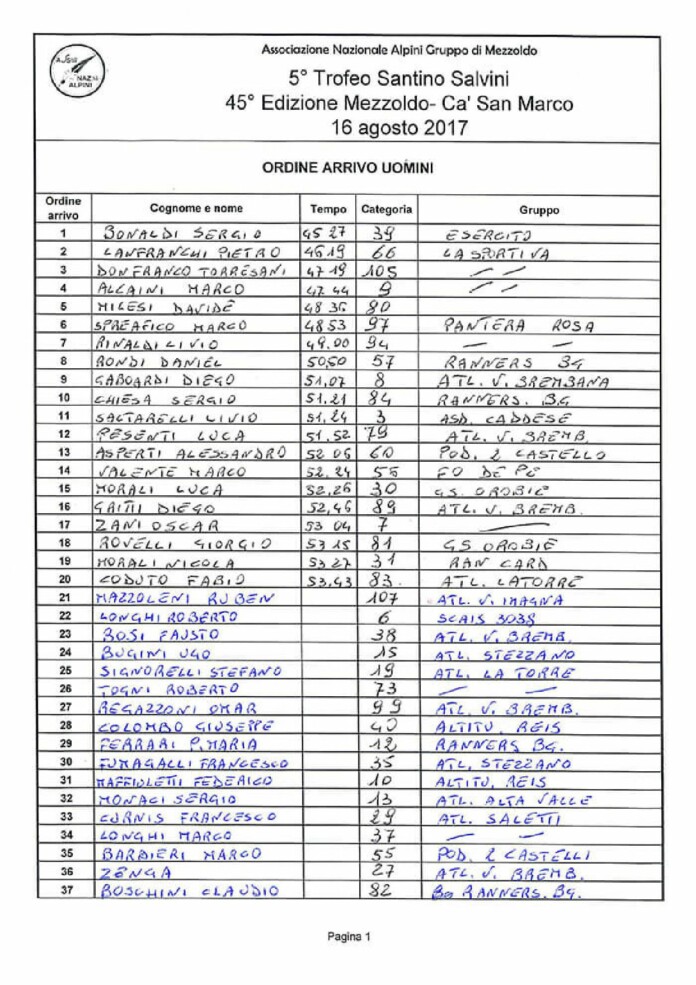 Associazione Nazionale Alpini Gruppo di Mezzoldo
5° Trofeo Santino Salvini
45° Edizione Mezzoldo- Ca' San Marco
16 agosto 2017
ORDINE ARRIVO UOMINI
Ordine arrivo Cognome e nome Tempo Categoria Gruppo
1 BONALDI SERGIO 45 27 39 ESERCITO
2 LANFRANCHI PIETRO 46 19 66 LA SPORTIVA
3 DON FRANCO TORRESANI 47 19 105 — —
4 ALCAINI MARCO 47 44 9 — —
5 MILESI DAVIDE 48 36 80
6 SPREAFICO MARCO 48 53 97 PANTERA ROSA
7 RINALDI LIVIO 49.00 94 — —
8 RONDI DANIEL 50,50 57 RANNERS BG
9 GABOARDI DIEGO 51,07 8 ATL. V. BREMBANA
10 CHIESA SERGIO 51.21 84 RANNERS. BG
11 SALTARELLI LIVIO 51,24 3 ASD. CADDESE
12 PESENTI LUCA 51.52 79 ATL. V. BREMB.
13 ASPERTI ALESSANDRO 52 06 60 POD. 2 CASTELLO
14 VALENTE MARCO 52.24 56 FO DE PE
15 MORALI LUCA 52.26 30 GS. OROBIE
16 GRITTI DIEGO 52,46 89 ATL. V. BREMB.
17 ZANI OSCAR 53 04 7 —
18 ROVELLI GIORGIO 53 15 81 GS OROBIE
19 MORALI NICOLA 53 27 31 RAN CARD
20 CODUTO FABIO 53,43 83. ATL. LATORRE
21 MAZZOLENI RUBEN 107 ATL. V. IMAGNA
22 LONGHI ROBERTO 6 SCAIS 3038
23 BOSI FAUSTO 38 ATL. V. BREMB.
24 BUGINI UGO 15 ATL. STEZZANO
25 SIGNORELLI STEFANO 19 ATL. LA TORRE
26 TOGNI ROBERTO 73 — —
27 REGAZZONI OMAR 99 ATL. V. BREMB.
28 COLOMBO GIUSEPPE 40 ALTITU. REIS
29 FERRARI P.MARIA 12 RANNERS BG.
30 FUMAGALLI FRANCESCO 35 ATL, STEZZANO
31 MAFFIOLETTI FEDERICO 10 ALTITU, REIS
32 MONACI SERGIO 13 ATL. ALTA VALLE
33 CORNIS FRANCESCO 29 ATL. SALETTI
34 LONGHI MARCO 37 — —
35 BARBIERI MARCO 55 POD. 2 CASTELLI
36 ZENGA 27 ATL. V. BREMB.
37 BOSCHINI CLAUDIO 82 BG RANNERS. BG.
Pagina 1